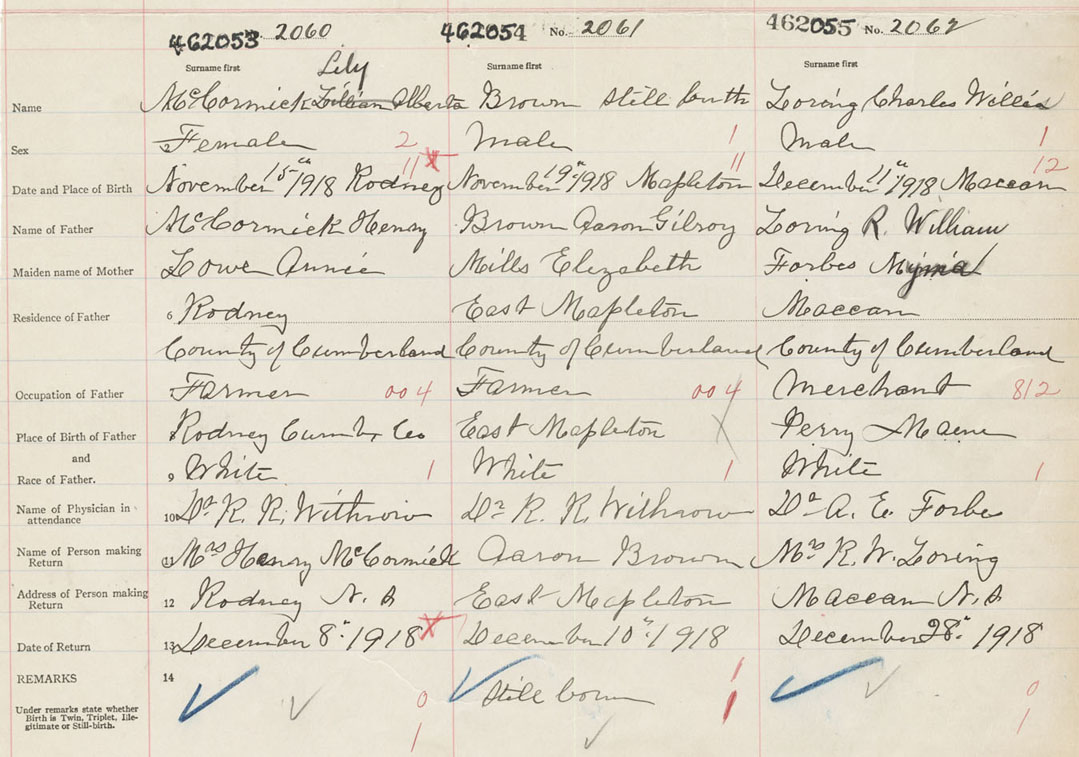 462053 2060 462054 No. 2061 462055 No. 2062
Surname first Lily Surname first Surname first
Name McCormick Lillian Alberta Brown Still birth Loring Charles Willis
Sex 2 Female 2 Male 1 Male 1
11 X 11 12
Date and Place of Birth November 15th 1918 Rodney November 19th 1918 Mapleton December 11th 1918 Maccan
Name of Father McCormick Henry Brown Aaron Gilroy Loring R. William
Maiden name of Mother Lowe Annie Mills Elizabeth Forbes Myrna
Residence of Father 6 Rodney East Mapleton Maccan
County of Cumberland County of Cumberland County of Cumberland
Occupation of Father Farmer 004 Farmer 004 Merchant 812
Place of Birth of Father Rodney Cumb. Co East Mapleton Perry Maine
and
Race of Father. 9 White 1 White 1 White 1
Name of Physician in
attendance 10 Dr R. R. Withrow Dr R. R. Withrow Dr A. E. Forbes
Name of Person making
Return 11 Mrs Henry McCormick Aaron Brown Mrs R. W. Loring
Address of Person making
Return 12 Rodney N. S East Mapleton Maccan N. S
Date of Return 13 December 8th 1918 X December 10th 1918 December 28th 1918
REMARKS 14 Still born 1
Under remarks state whether 0 1 0
Birth is Twin, Triplet, Ille-
gitimate or Still-birth. 1 1